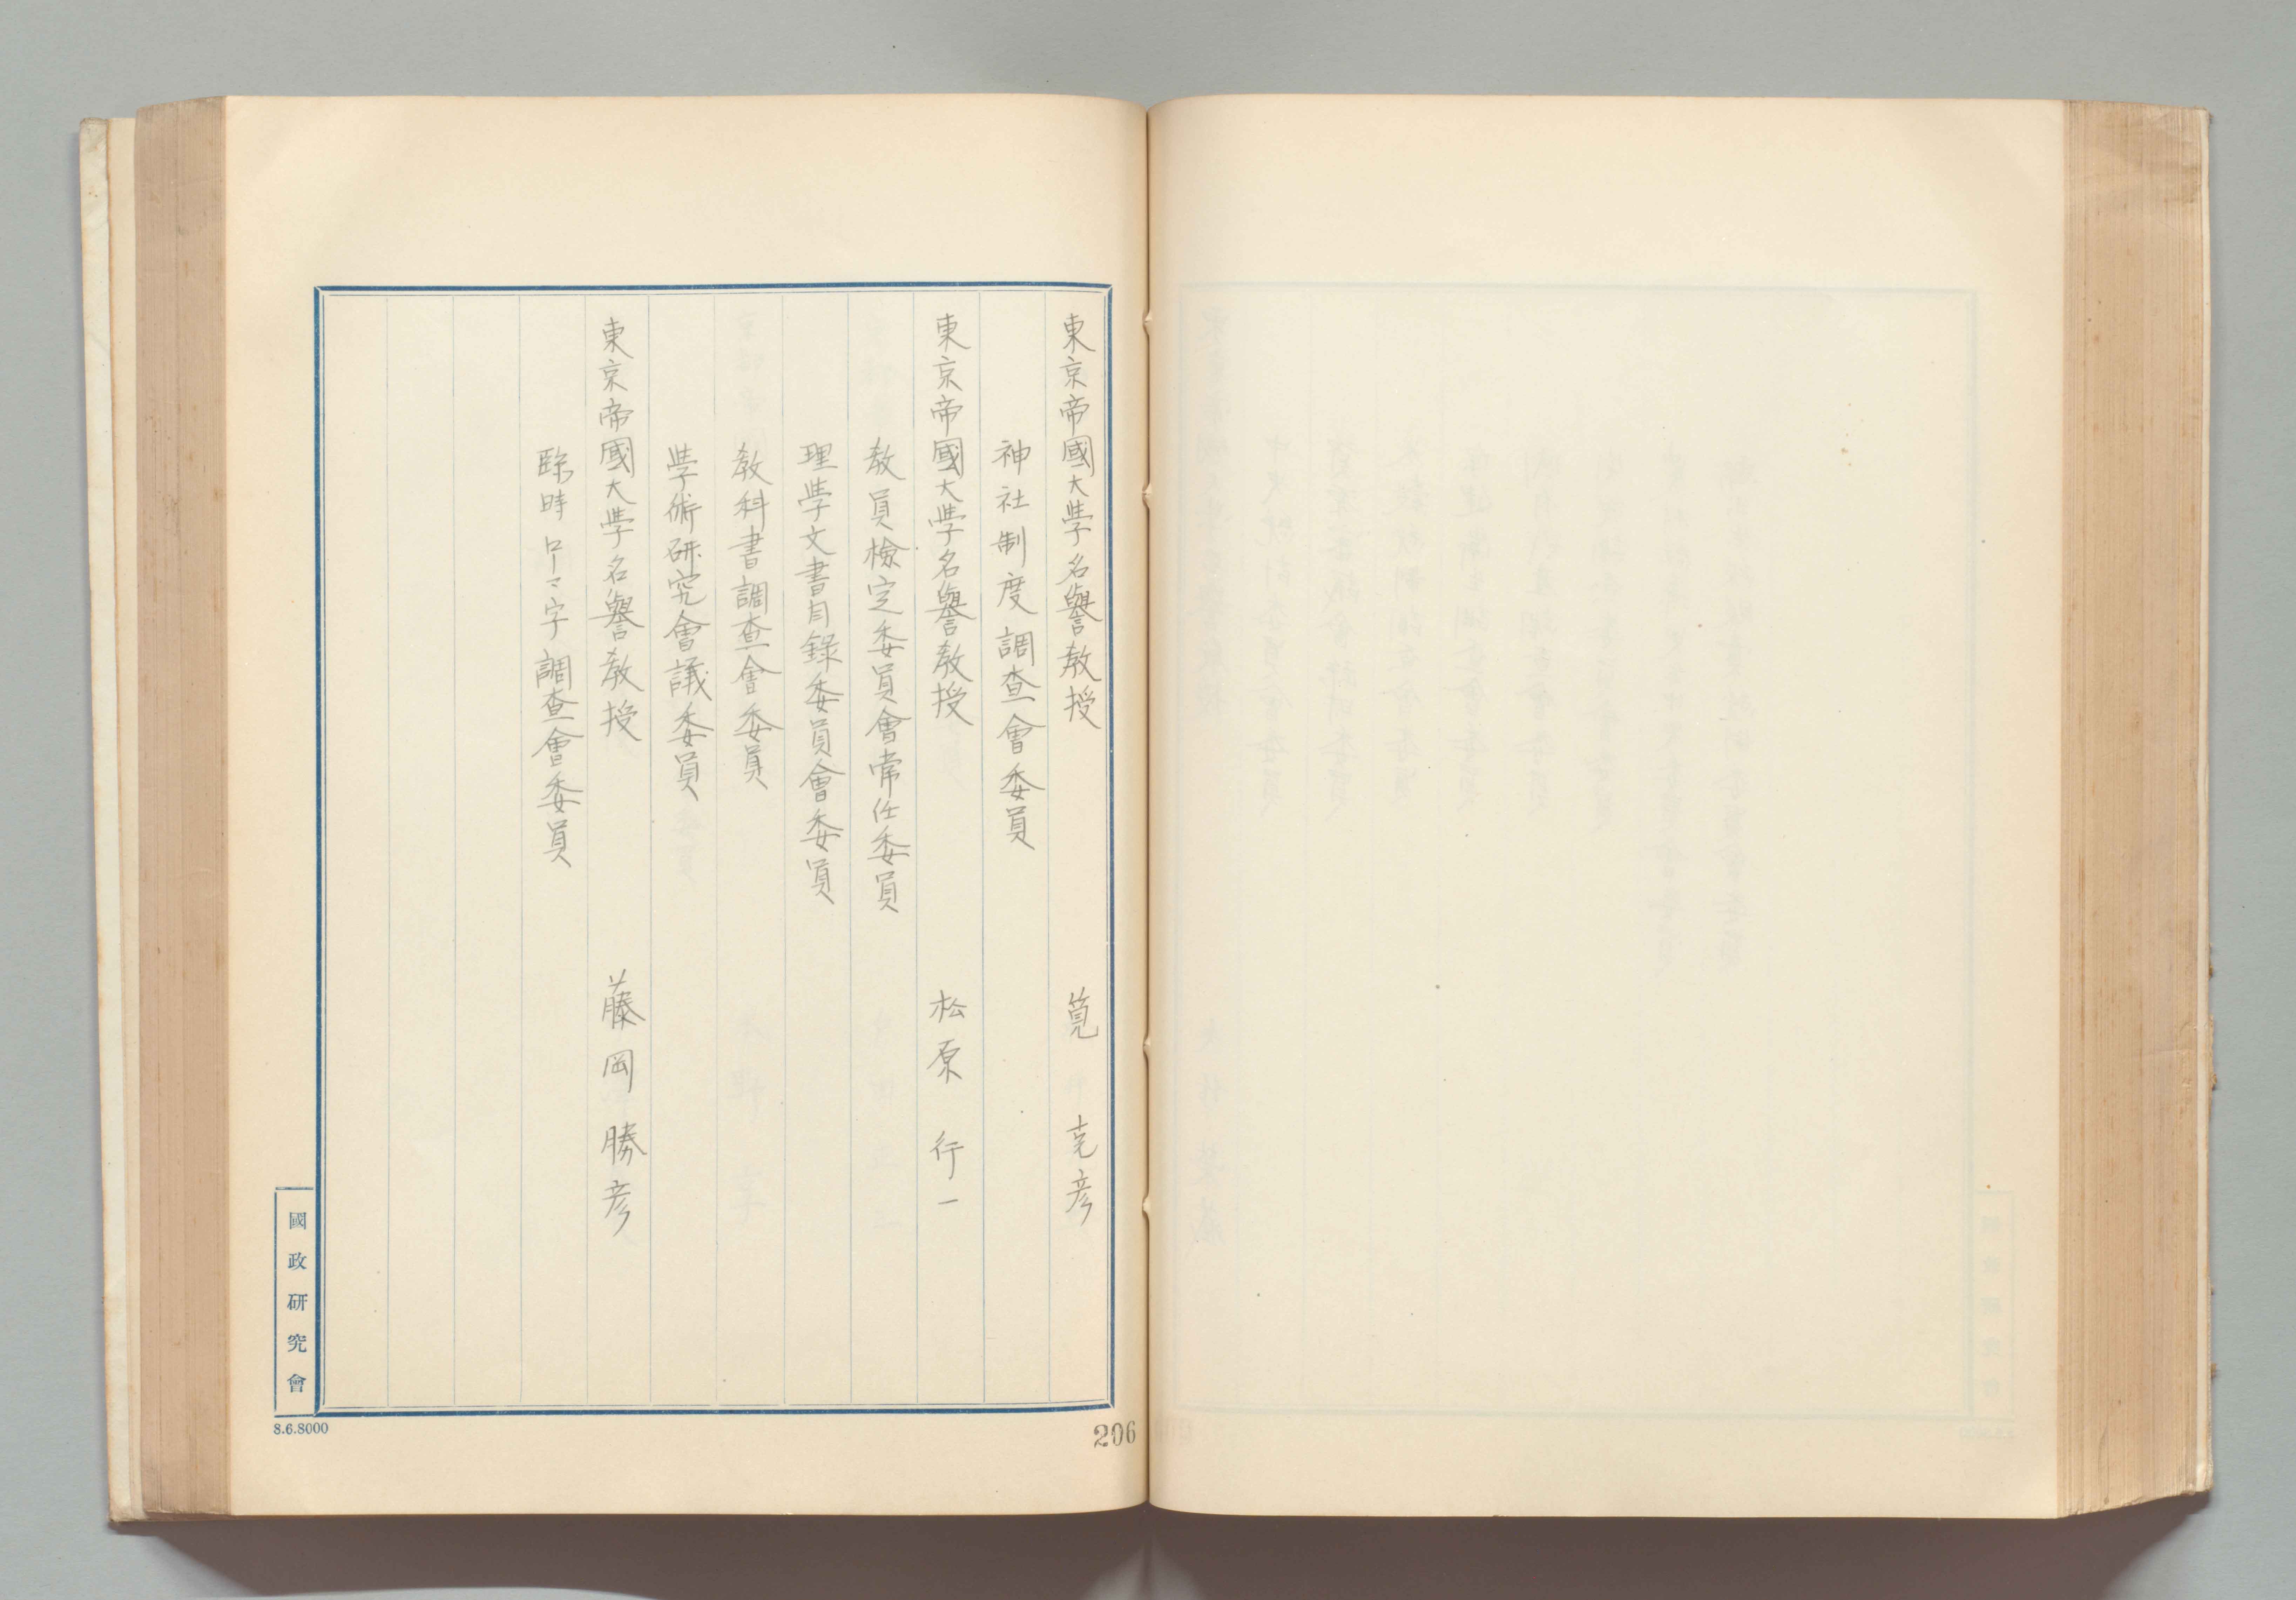 東京帝國大學名譽教授 筧 克彦
神社制度調査會委員
東京帝國大學名譽教授 松原 行一
教員檢定委員會常任委員
理學文書目錄委員會委員
教科書調査會委員
學術研究會議委員
東京帝國大學名譽教授 藤岡 勝彦
臨時ローマ字調査會委員
國政研究會
8.6.8000
206